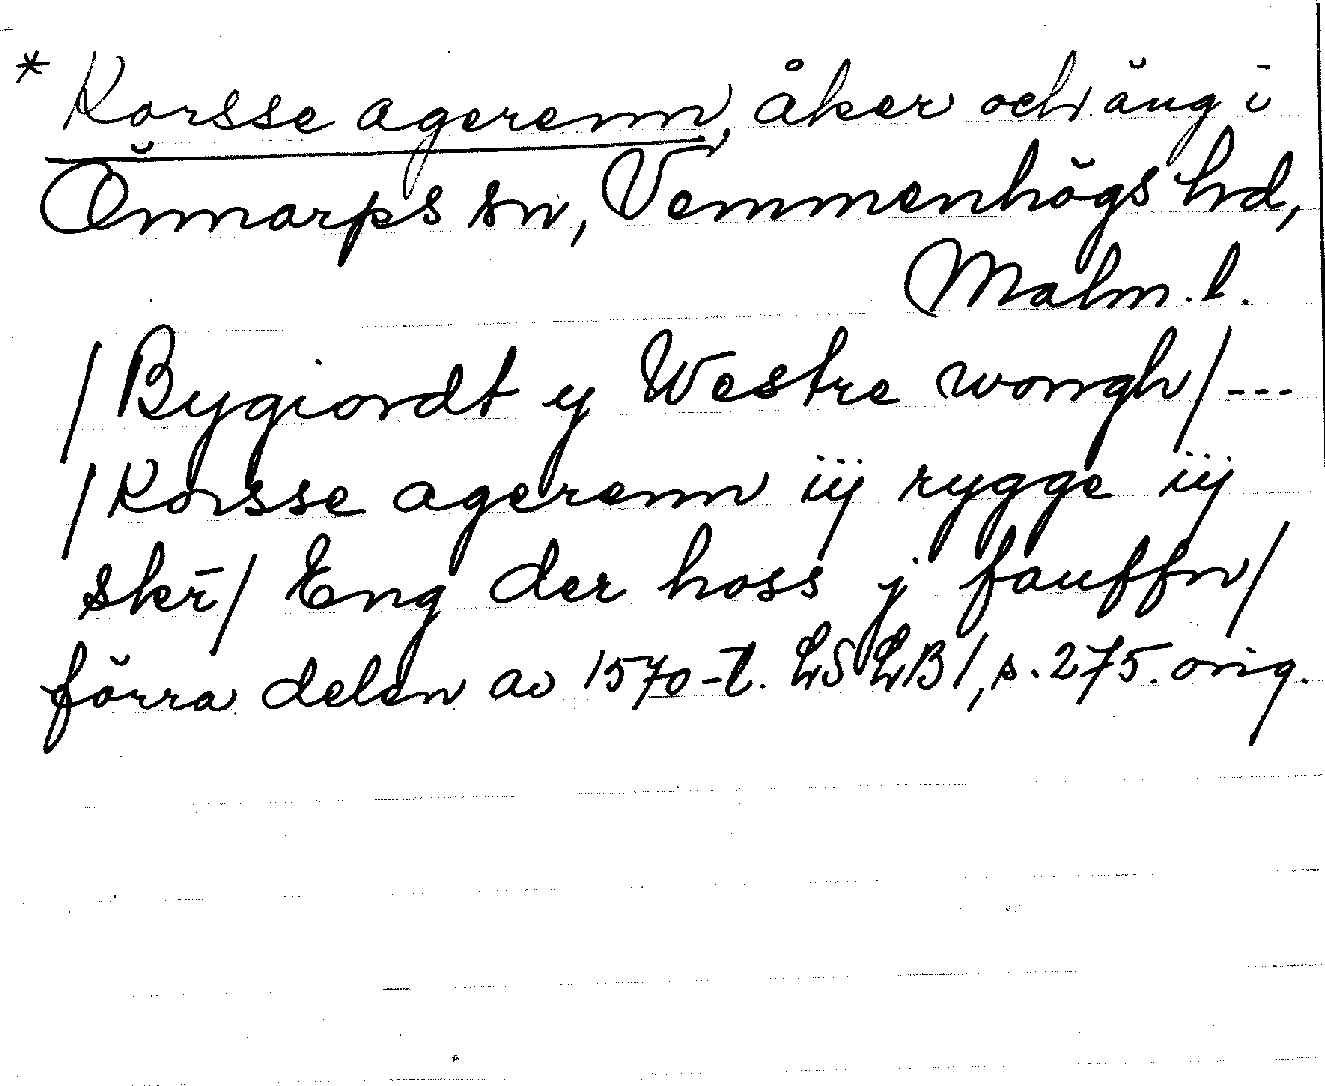 * Korsse agerenn, åker och äng i
Önnarps sn, Vemmenhögs hd,
Malm. l.
/Bygiordt y Westre wongh/---
/Korsse agerenn iij rygge iij
skr̄/ Eng der hoss j fauffn/
förra delen av 1570-t. LSLB1, s. 275. orig.